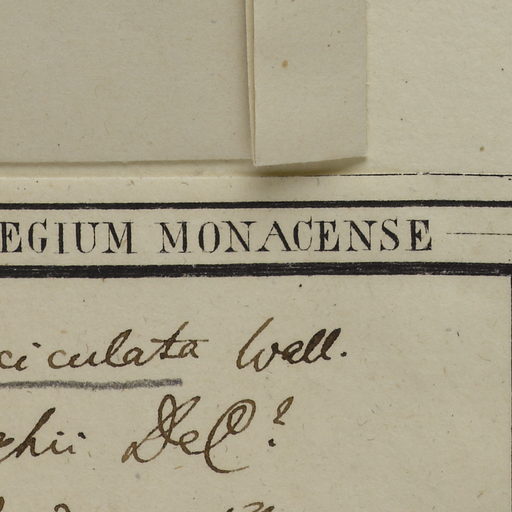 EGIUM MONACENSE
ciculata Wall.
chii DeC?